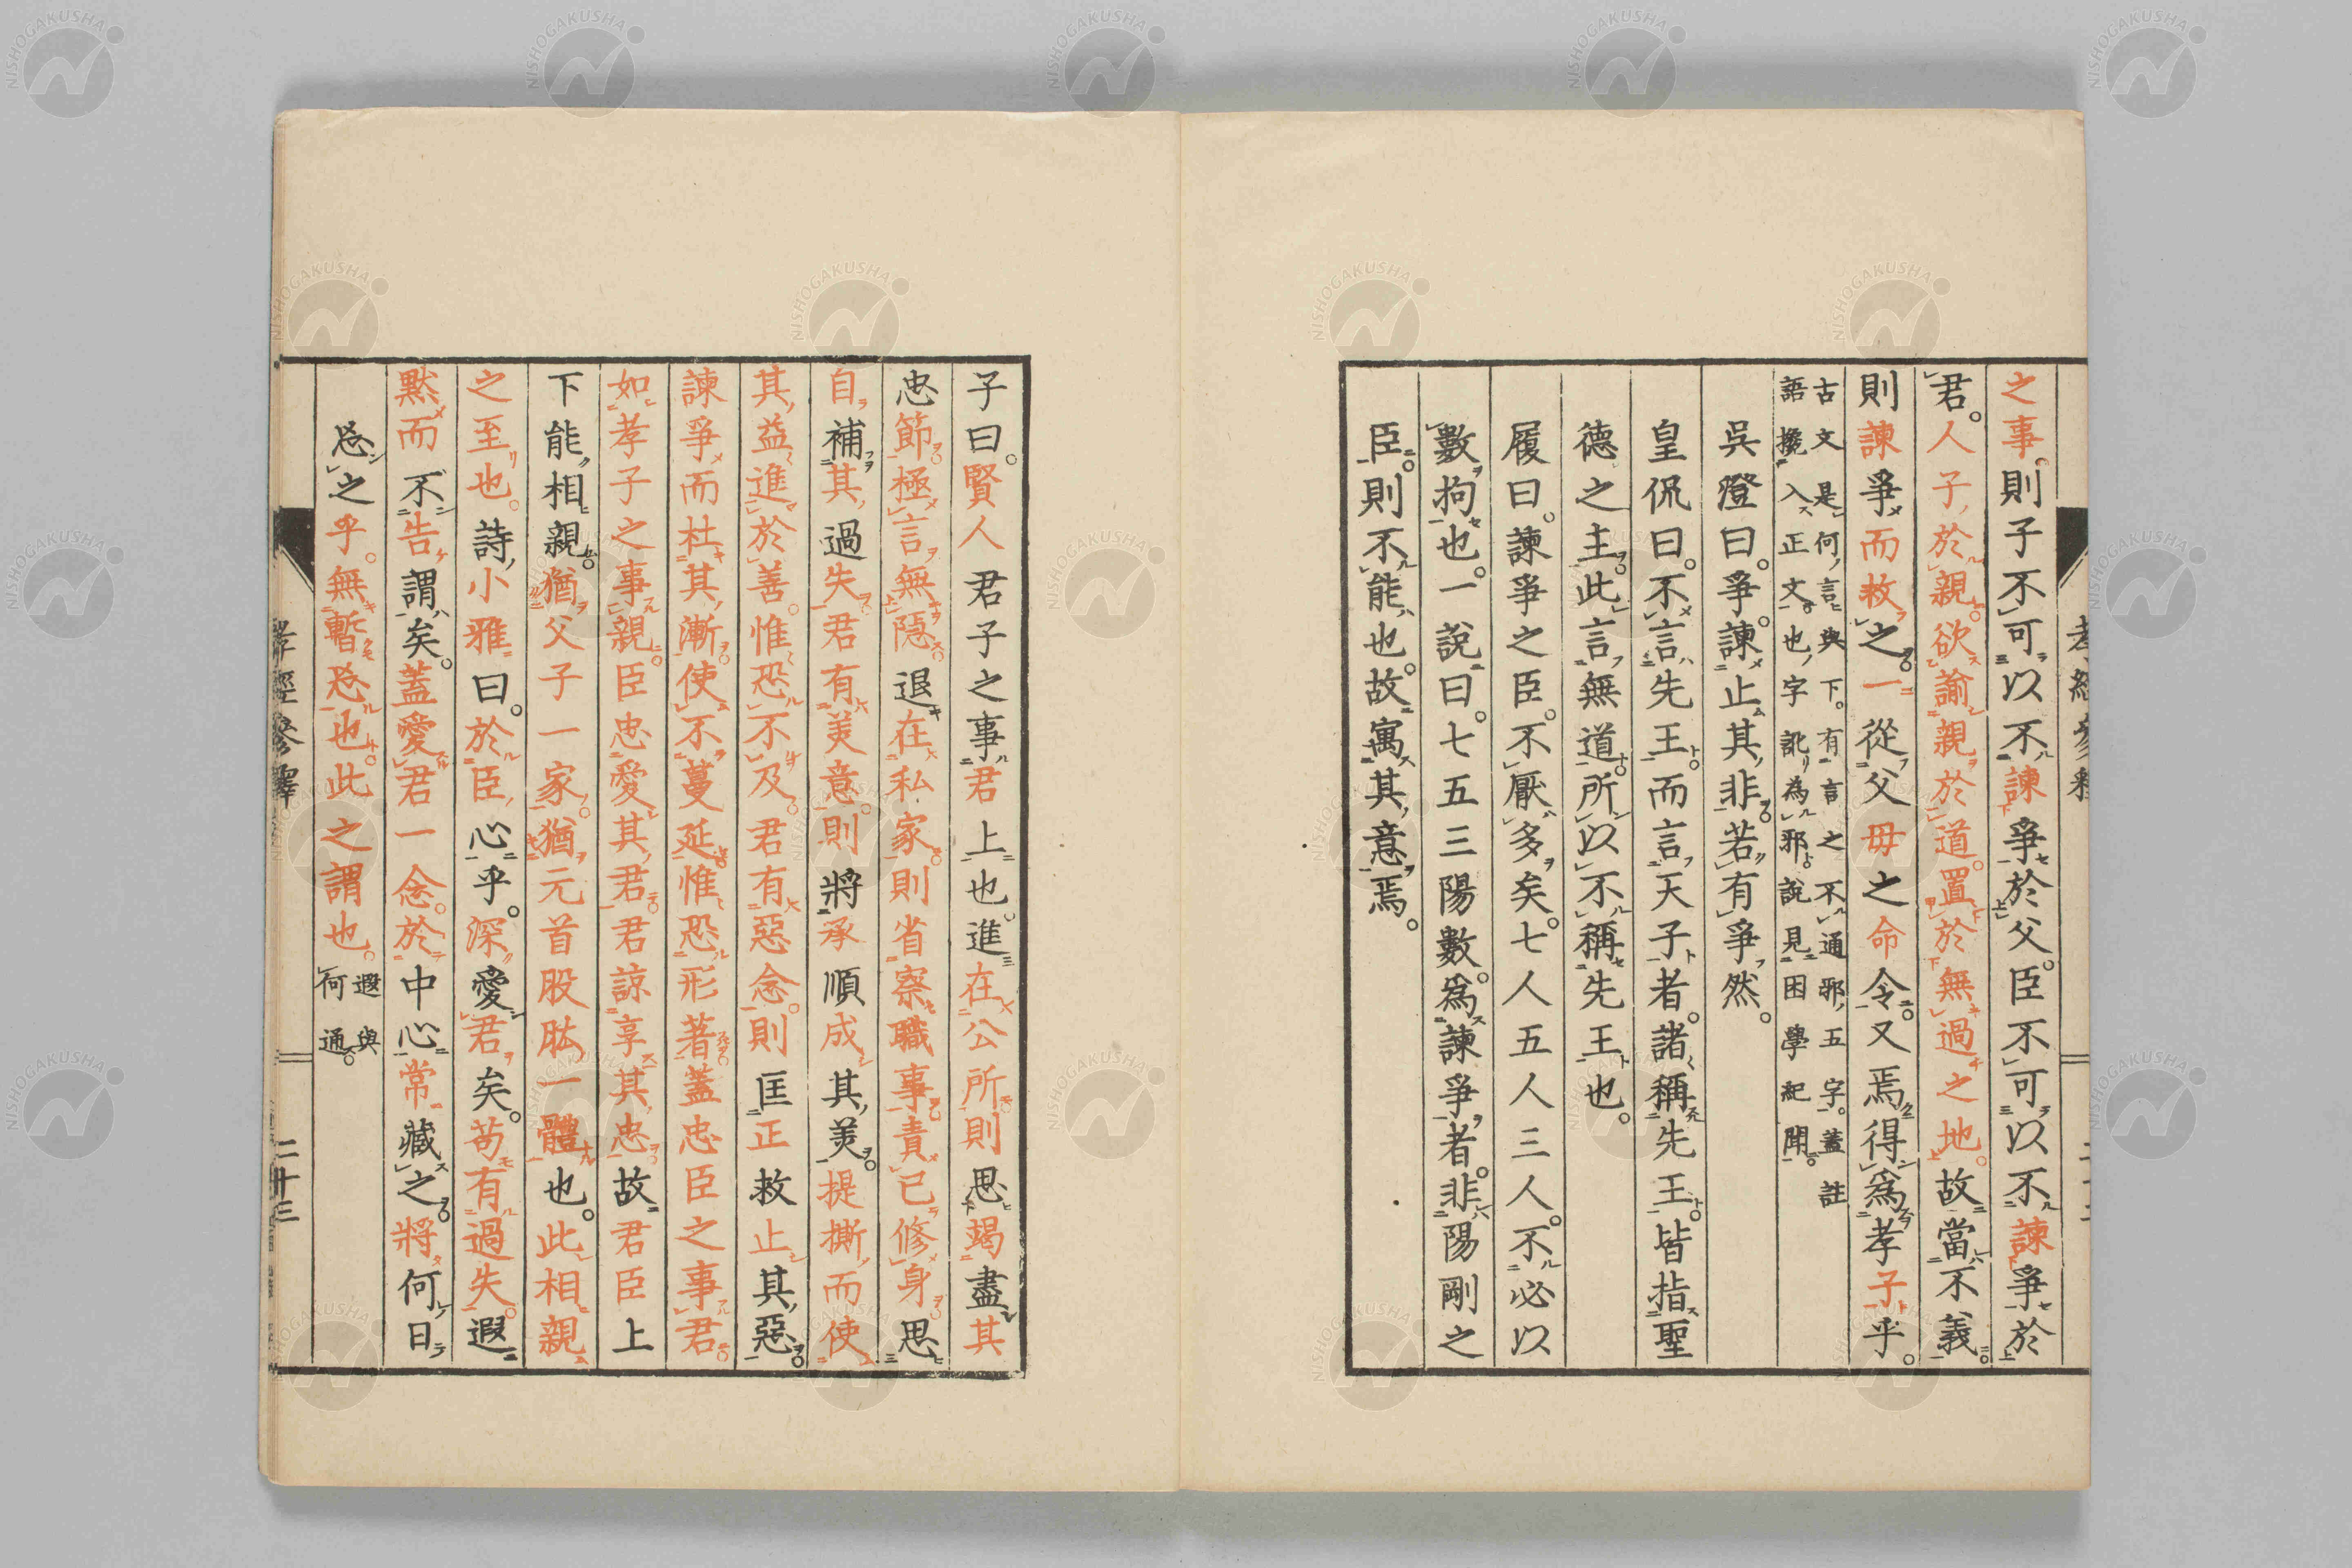 之事。則子不可以不諫爭於父。臣不可以不諫爭於
君。人子於親欲諭親於道。置於無過之地。故當不義
則諫爭而救之。一從父毋之命令又焉得爲孝子乎。
古文是何言與下。有言之不通邪五字。蓋註
語攙入正文也字訛為邪。說見困學紀聞。
吳澄曰。爭。諫止其非。若有爭然。
皇侃曰。不言先王。而言天子者。諸稱先王。皆指聖
德之主。此言無道。所以不稱先王也。
履曰。諫爭之臣。不厭多矣。七人五人三人。不必以
數拘也。一說曰。七五三陽數。爲諫爭者。非陽剛之
臣。則不能也。故寓其意焉。
孝經參釋
子曰。賢人君子之事君上也。進在公所則思竭盡其
忠節極言無隱。退在私家。則省察職事責已修身。思
自補其過失。君有美意。則將承順成其美。提撕而使
其益進於善。惟恐不及。君有惡念。則匡正救止其惡。
諫爭而杜其漸。使不蔓延。惟恐形著。蓋忠臣之事君。
如孝子之事親。臣忠愛其君。君諒享其忠。故君臣上
下能相親。猶父子一家。猶元首股肱一體也。此相親
之至也。詩小雅曰。於臣心乎。深愛君矣。苟有過失。遐
默而不告謂矣。蓋愛君一念。於中心常藏之。將何日
忘之乎。無暫忘也。此之謂也。遐與
何通。
孝經參釋
二十三
NISHOGAKUSHA